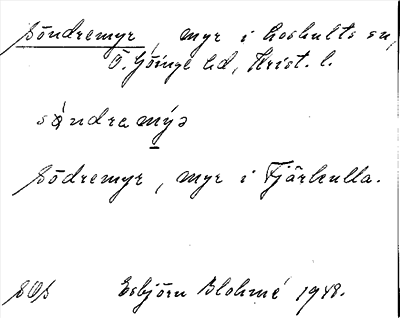 Söndremyr, myr i Loshults sn,
Ö. Göinge hd, Krist. l.
söndra mýs
Södremyr, myr i Fjärhulla.
Esbjörn Blohmé 1948.